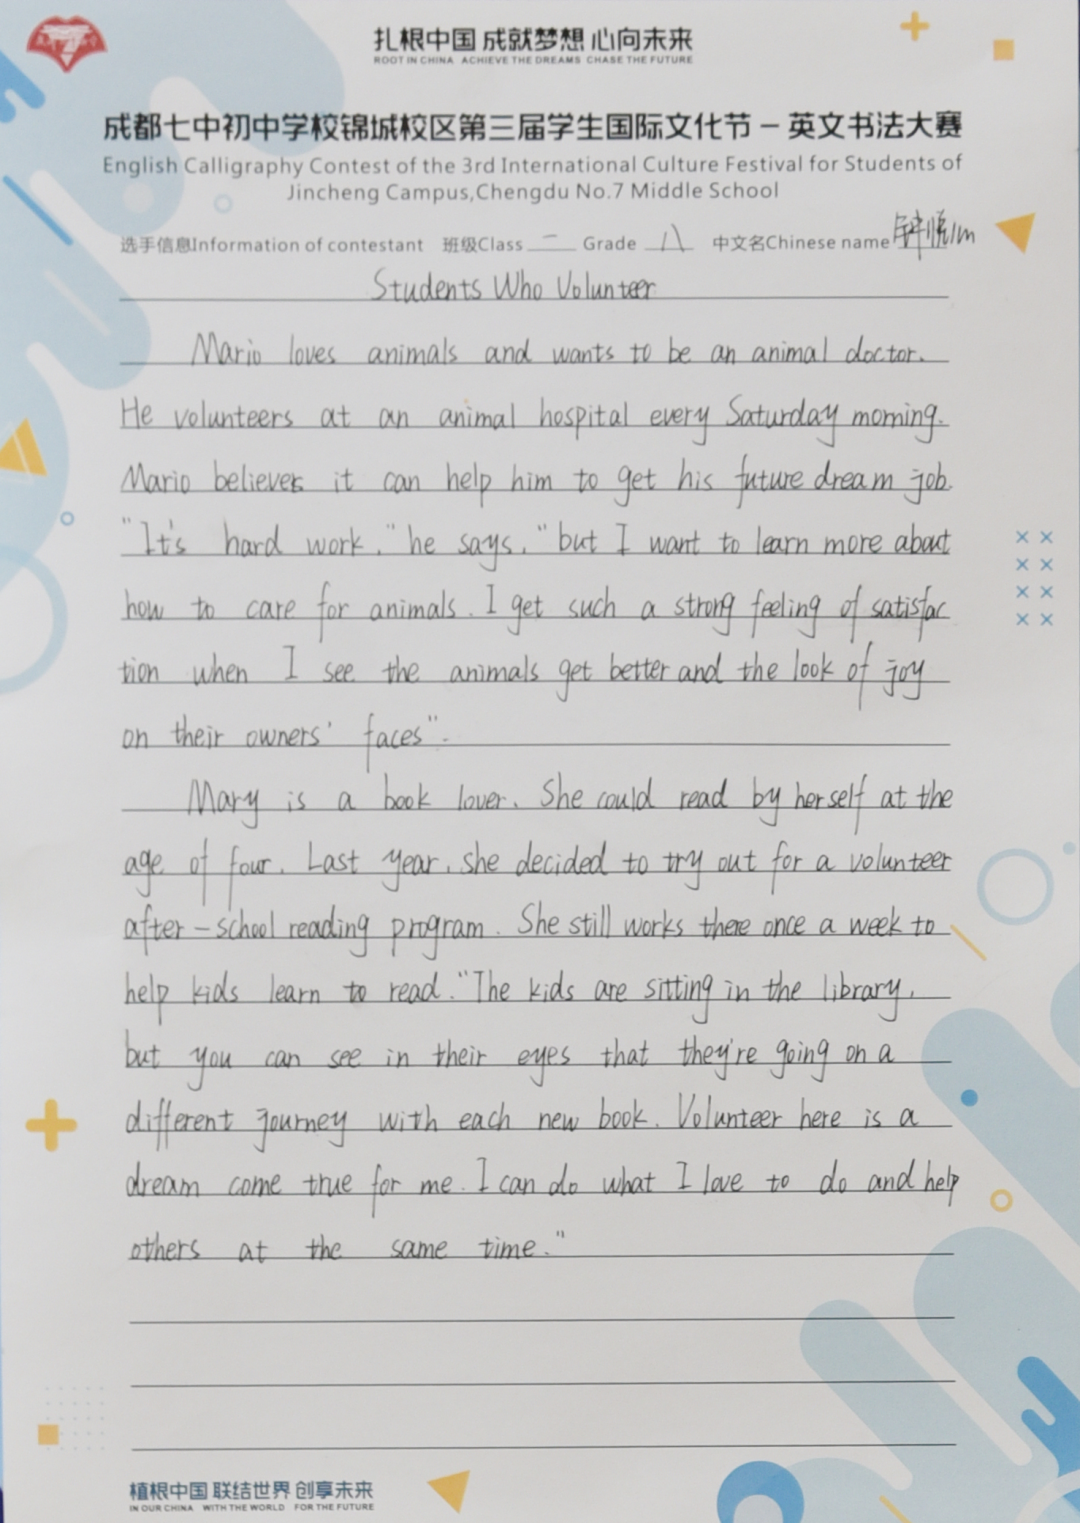 扎根中国 成就梦想 心向未来
ROOT IN CHINA ACHIEVE THE DREAMS CHASE THE FUTURE
成都七中初中学校锦城校区第三届学生国际文化节－英文书法大赛
English Calligraphy Contest of the 3rd International Culture Festival for Students of
Jincheng Campus,Chengdu No.7 Middle School
选手信息Information of contestant 班级Class 一 Grade 八 中文名Chinese name 钟悦
Students Who Volunteer
Mario loves animals and wants to be an animal doctor.
He volunteers at an animal hospital every Saturday morning.
Mario believes it can help him to get his future dream job.
"It's hard work," he says, "but I want to learn more about
how to care for animals. I get such a strong feeling of satisfac
tion when I see the animals get better and the look of joy
on their owners' faces".
Mary is a book lover. She could read by herself at the
age of four. Last year, she decided to try out for a volunteer
after-school reading program. She still works there once a week to
help kids learn to read. "The kids are sitting in the library,
but you can see in their eyes that they're going on a
different journey with each new book. Volunteer here is a
dream come true for me. I can do what I love to do and help
others at the same time."
植根中国 联结世界 创享未来
IN OUR CHINA WITH THE WORLD FOR THE FUTURE